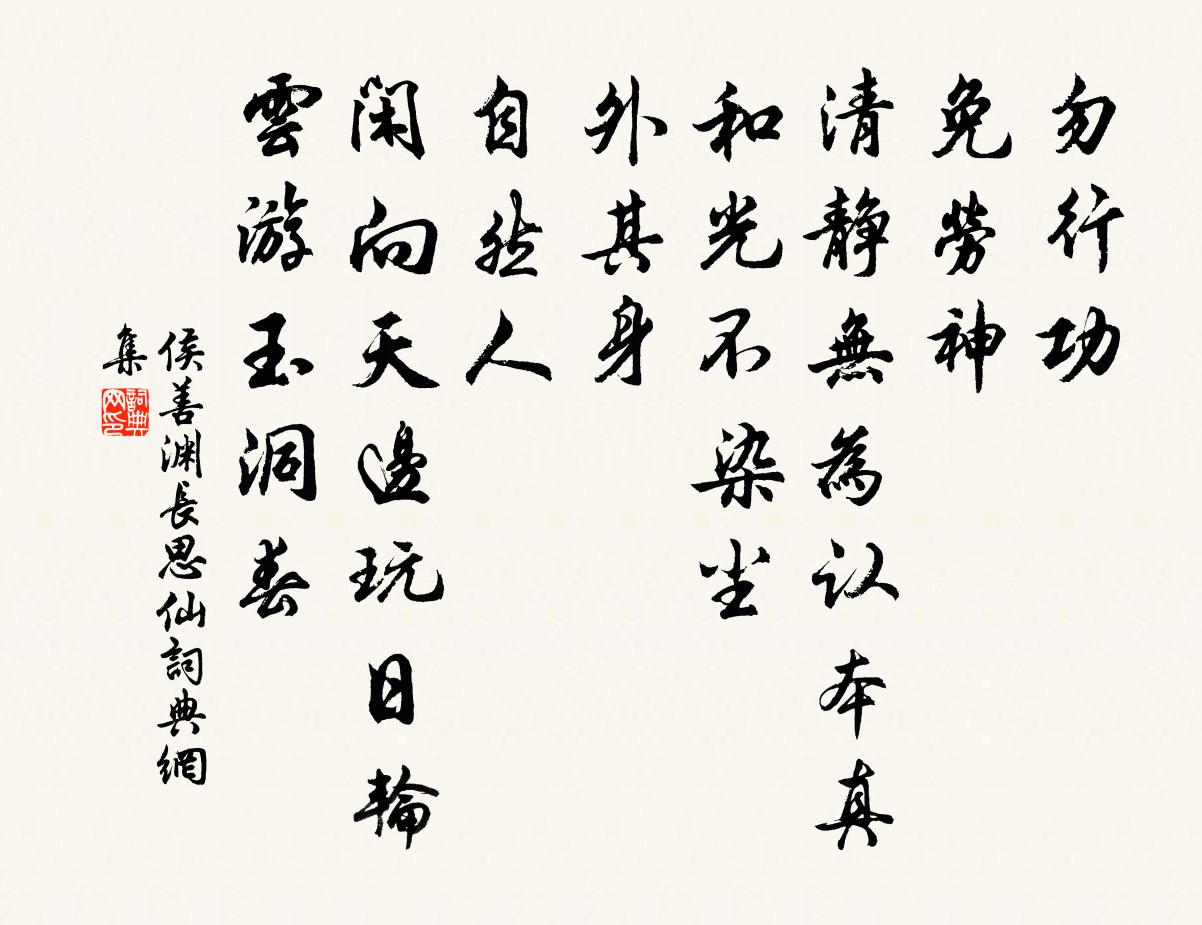 勿行功
免勞神
清静無為认本真
和光不染尘
外其身
自然人
閑向天邊玩日輪
雲游玉洞春
侯善渊長思仙詞典網
集
詞典网印